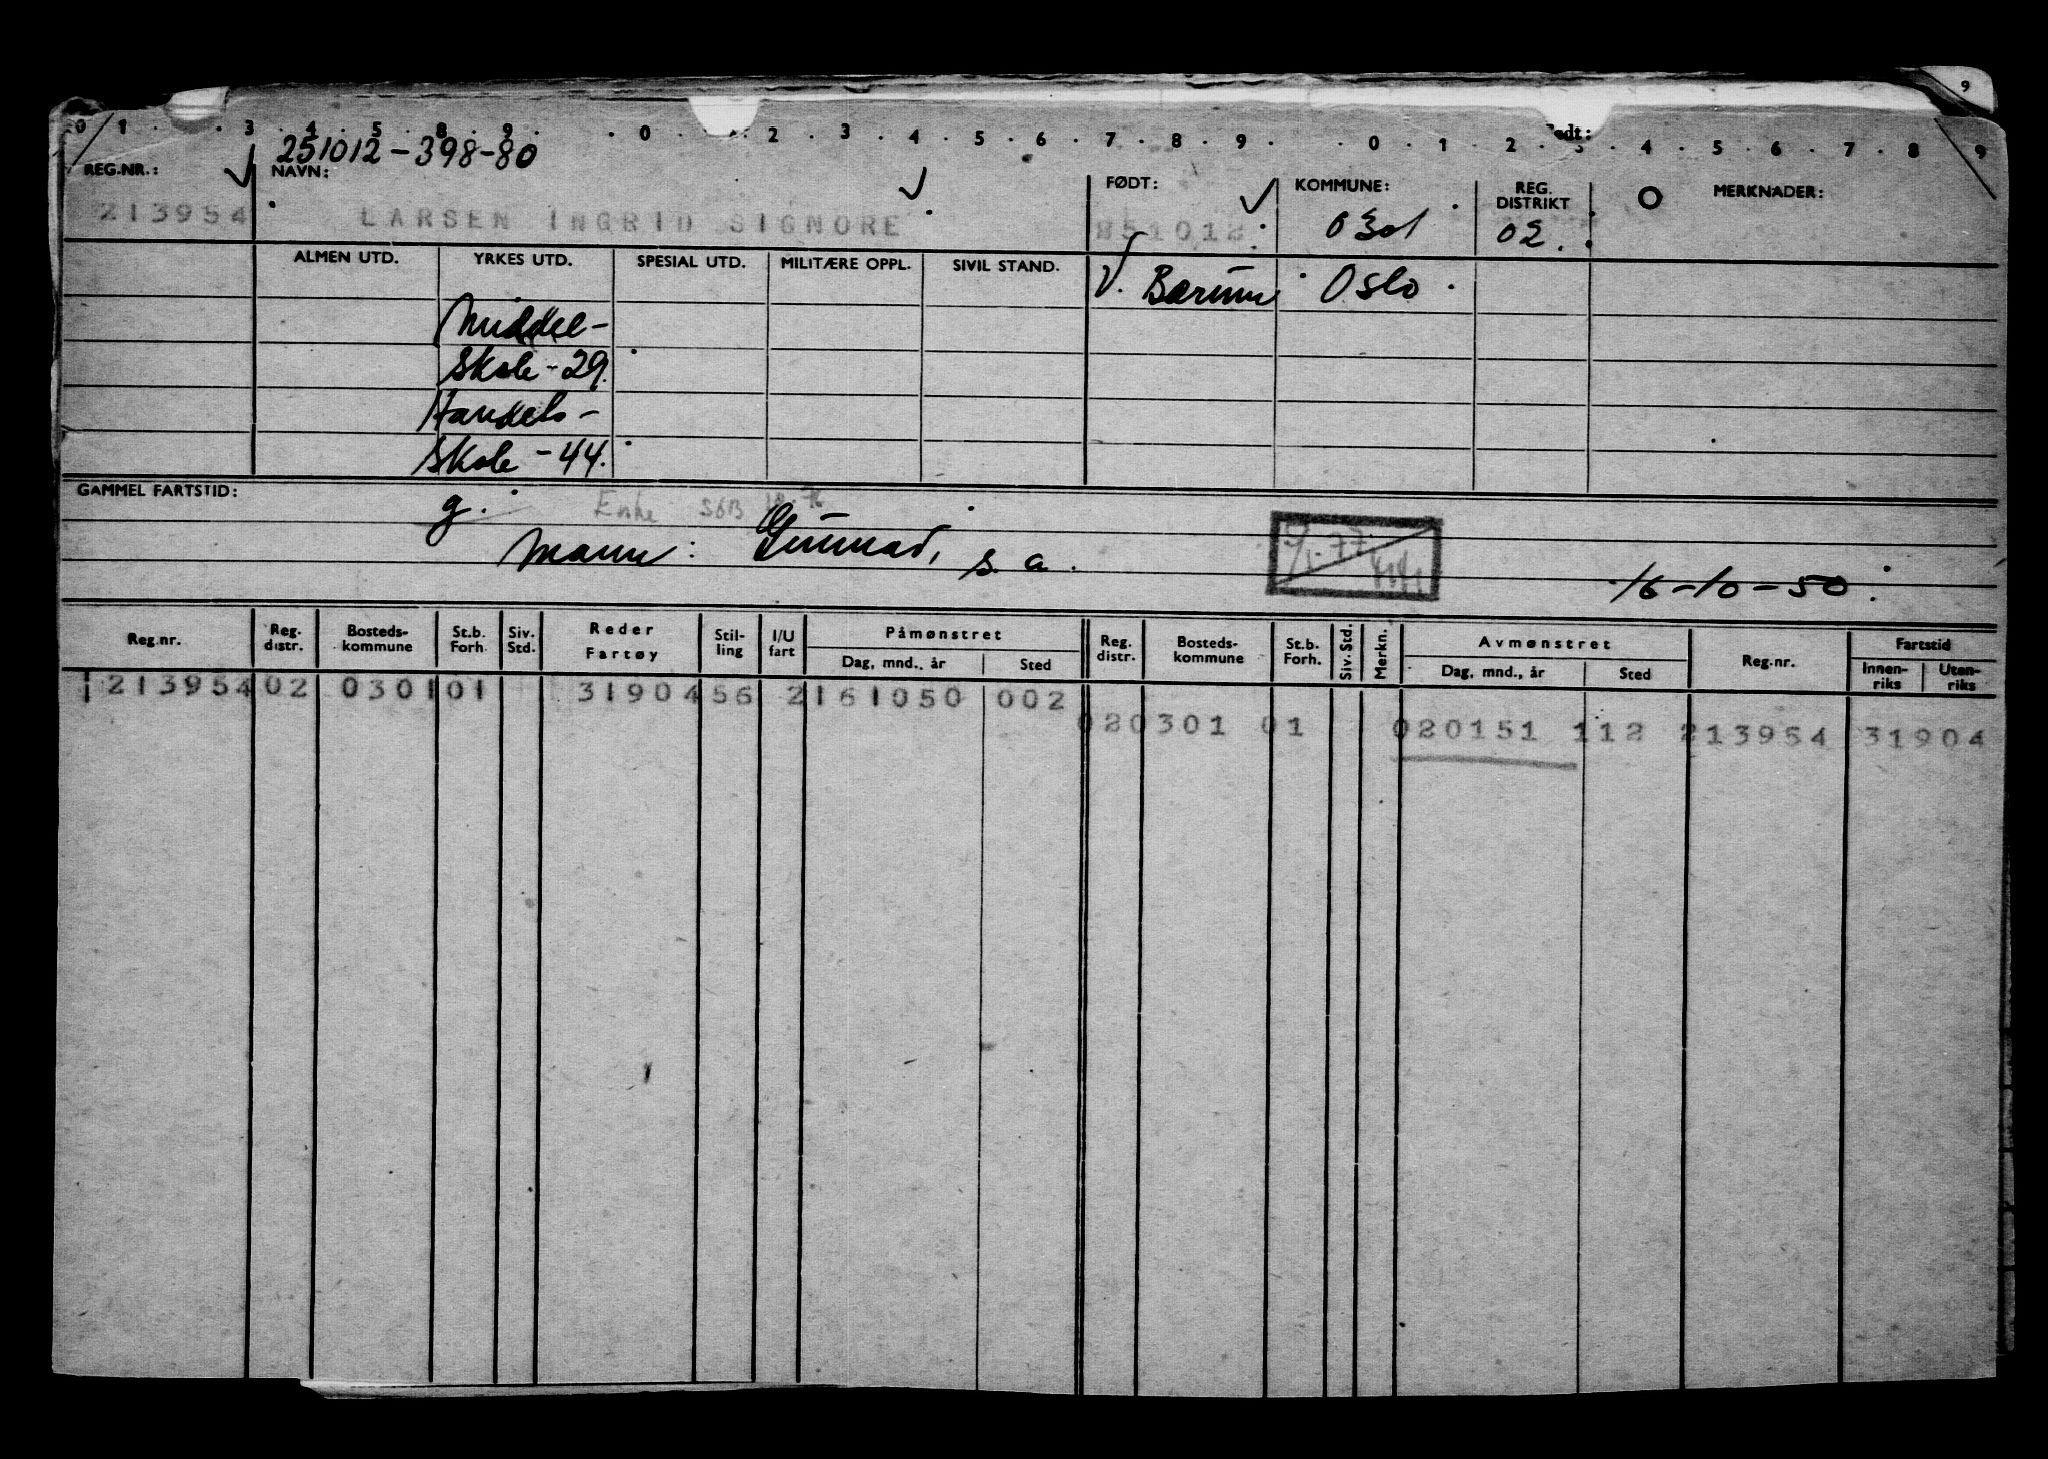 9
0 1 . . 3 . 4 . 5 . 8 . 9 . . 0 . . 2 . 3 . 4 . 5 . 6 . 7 . 8 . 9 . . 0 . 1 . 2 . 3 . 4 . 5 . 6 . 7 . 8 . 9
ødt:
251012-398-80
REG.NR.: NAVN: FØDT: KOMMUNE: REG. DISTRIKT MERKNADER:
213954 LARSEN INGRID SIGNORE 251012 0301 02.
ALMEN UTD. YRKES UTD. SPESIAL UTD. MILITÆRE OPPL. SIVIL STAND.
V. Bærum Oslo
Middel-
skole - 29.
Handels-
skole - 44.
GAMMEL FARTSTID:
g. Enke
Mann: Gunnar, s. a. 77 16-10-50.
Reg.nr. Reg. distr. Bosteds-kommune St.b. Forh. Siv. Std. Reder Fartøy Stil-ling I/U fart Påmønstret Dag, mnd., år Sted Reg. distr. Bosteds-kommune St.b. Forh. Siv. Std. Merkn. Avmønstret Dag, mnd., år Sted Reg.nr. Fartstid Innen-riks Uten-riks
1 213954 02 0301 01 31904 56 2 161050 002
02 0301 01 020151 112 213954 31904